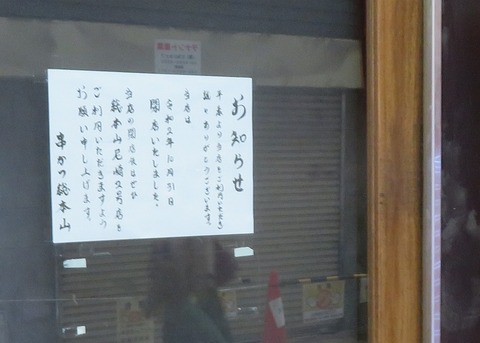 お知らせ
平素より当店をご利用いただき
誠にありがとうございます。
当店は
令和2年10月31日
閉店いたしました。
当店の閉店後はぜひ
総本山尼崎2号店を
ご利用いただきますよう
お願い申し上げます。
串かつ総本山